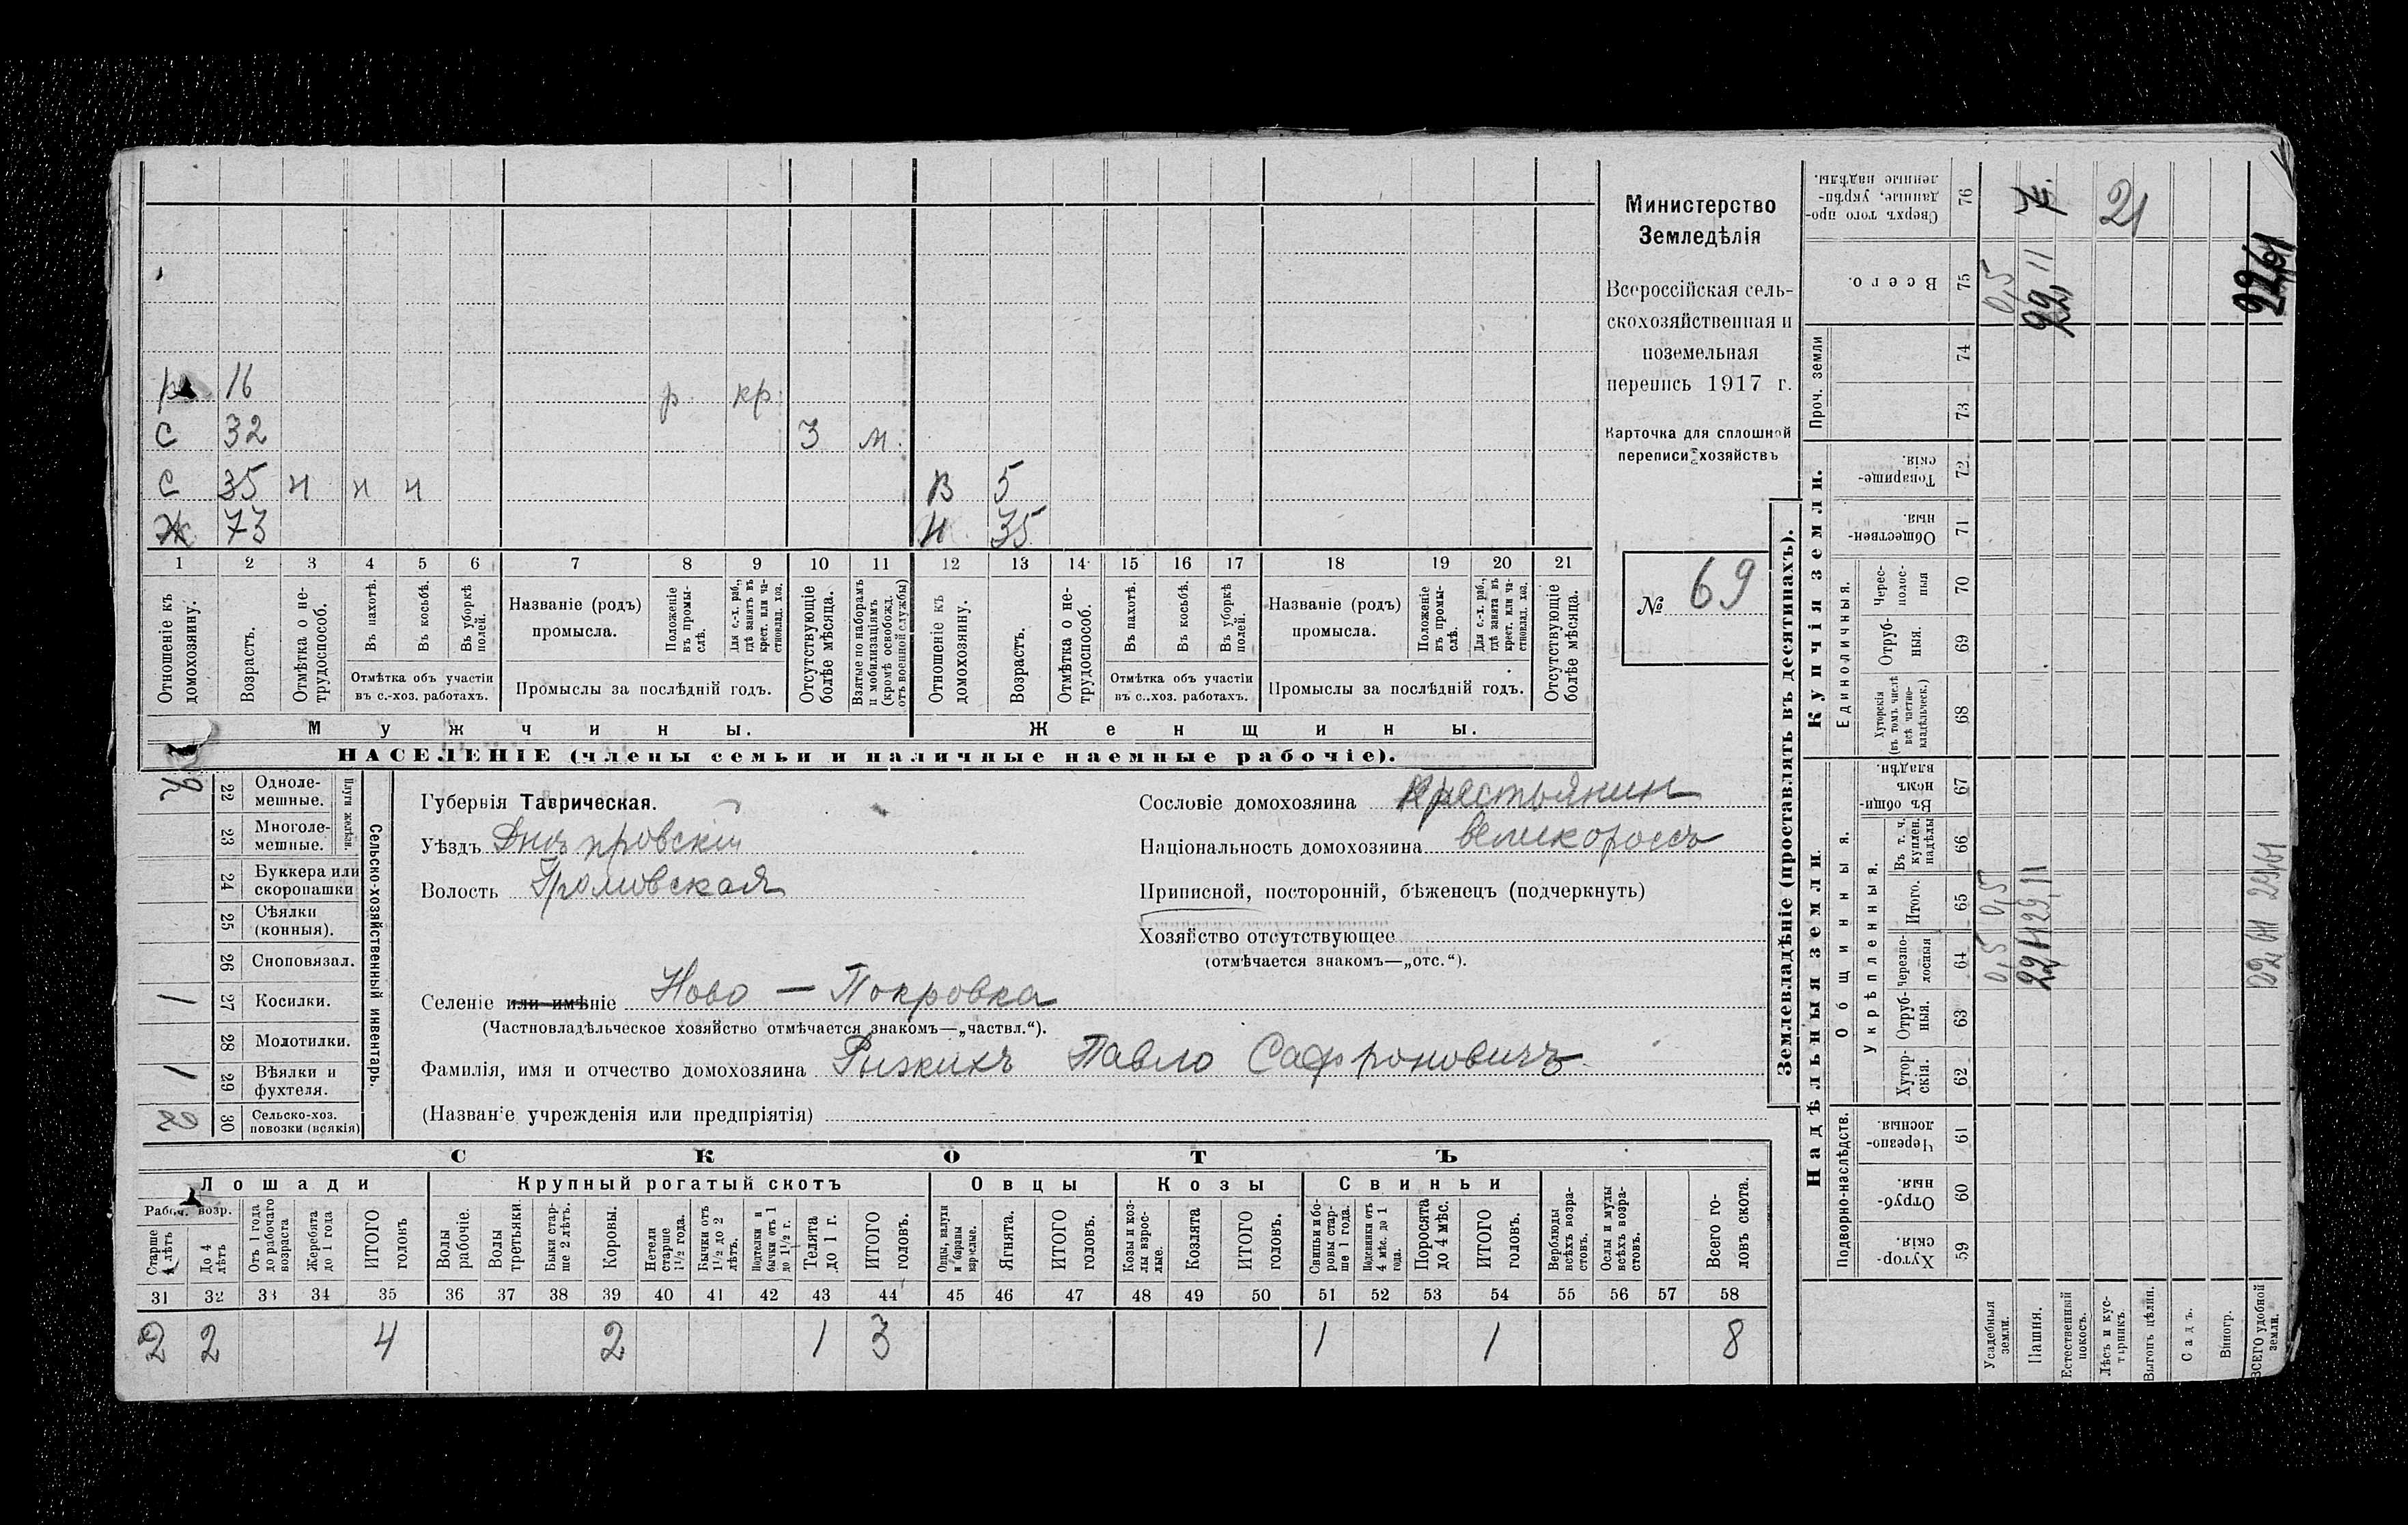 р 16 р кр
С 32 3 м.
С 35 н н н В 5
Ж 73 Н 35
1 2 3 4 5 6 7 8 9 10 11 12 13 14 15 16 17 18 19 20 21
Отношеніе къ домохозяину.
Возрастъ.
Отмѣтка о нетрудоспособ.
Въ пахотѣ.
Въ косьбѣ.
Въ уборкѣ полей.
Отмѣтка объ участіи
въ с.-хоз. работахъ.
Названіе (родъ)
промысла.
Положеніе въ промыслѣ.
Для с.-х. раб., гдѣ занятъ въ крест. или частновлад. хоз.
Промыслы за послѣдній годъ.
Отсутствующіе болѣе мѣсяца.
Взятые по наборамъ и мобилизаціямъ (кромѣ освобожд. отъ военной службы)
Отношеніе къ домохозяину.
Возрастъ.
Отмѣтка о нетрудоспособ.
Въ пахотѣ.
Въ косьбѣ.
Въ уборкѣ полей.
Отмѣтка объ участіи
въ с..хоз. работахъ.
Названіе (родъ)
промысла.
Положеніе въ промыслѣ.
Для с.-х. раб., гдѣ занята въ крест. или частновлад. хоз.
Промыслы за послѣдній годъ.
Отсутствующіе болѣе мѣсяца.
Мужчины. Женщины.
НАСЕЛЕНІЕ (члены семьи и наличные наемные рабочіе).
Министерство
Земледѣлія
Всероссійская сель-
скохозяйственная и
поземельная
перепись 1917 г.
Карточка для сплошной
переписи хозяйствъ
№ 69
Сельско-хозяйственный инвентарь.
Плуги желѣзн.
22 Одноле-
мешные.
23 Многоле-
мешные.
24 Буккера или
скоропашки
25 Сѣялки
(конныя).
26 Сноповязал.
1 27 Косилки.
28 Молотилки.
1 29 Вѣялки и
фухтеля.
30 Сельско-хоз.
повозки (всякія)
Губернія Таврическая.
Уѣздъ Днѣпровскій
Волость Громовская
Сословіе домохозяина крестьянин
Національность домохозяина великороссъ
Приписной, посторонній, бѣженецъ (подчеркнуть)
Хозяйство отсутствующее
(отмѣчается знакомъ—„отс.“).
Селеніе или имѣніе Ново — Покровка
(Частновладѣльческое хозяйство отмѣчается знакомъ—„частвл.“).
Фамилія, имя и отчество домохозяина Рыжихъ Павло Сафроновичъ
(Названіе учрежденія или предпріятія)
СКОТЪ
Лошади Крупный рогатый скотъ Овцы Козы Свиньи
Рабоч. возр.
Старше 4 лѣтъ
До 4 лѣтъ
Отъ 1 года до рабочаго возраста
Жеребята до 1 года
ИТОГО головъ
Волы рабочіе.
Волы третьяки.
Быки старше 2 лѣтъ.
Коровы.
Нетели старше 1½ года.
Бычки отъ 1½ до 2 лѣтъ.
Подтелки и бычки отъ 1 до 1½ г.
Телята до 1 г.
ИТОГО головъ.
Овцы, валухи и бараны взрослые.
Ягнята.
ИТОГО головъ.
Козы и козлы взрослые.
Козлята
ИТОГО головъ.
Свиньи и боровы старше 1 года.
Подсвинки отъ 4 мѣс. до 1 года.
Поросята до 4 мѣс.
ИТОГО головъ.
Верблюды всѣхъ возрастовъ.
Ослы и мулы всѣхъ возрастовъ.
Всего головъ скота.
31 32 33 34 35 36 37 38 39 40 41 42 43 44 45 46 47 48 49 50 51 52 53 54 55 56 57 58
2 2 4 2 1 3 1 1 8
Землевладѣніе (проставлять въ десятинахъ).
Надѣльныя земли.
Купчія земли.
Проч. земли
Сверхъ того проданные, укрѣпленные надѣлы. 76 21
Всего. 75 0,5 22,11 2261
74
73
Товарищескія. 72
Общественныя. 71
Единоличныя.
Чересполосныя 70
Отрубныя. 69
Хуторскія (въ томъ числѣ всѣ частновладѣльческ.) 68
Общинныя.
Въ общинномъ владѣн. 67
Укрѣпленныя.
Въ т. ч. куплен. надѣлы 66
Итого. 65 0,5
Черезполосныя 64 0,5
Отрубныя. 63
Хуторскія. 62
Подворно-наслѣдств.
Черезполосныя 61
Отрубныя. 60
Хуторскія. 59
Усадебныя земли.
Пашня.
Естественный покосъ.
Лѣсъ и кустарникъ.
Выгонъ цѣлин.
Садъ.
Виногр.
ВСЕГО удобной земли.